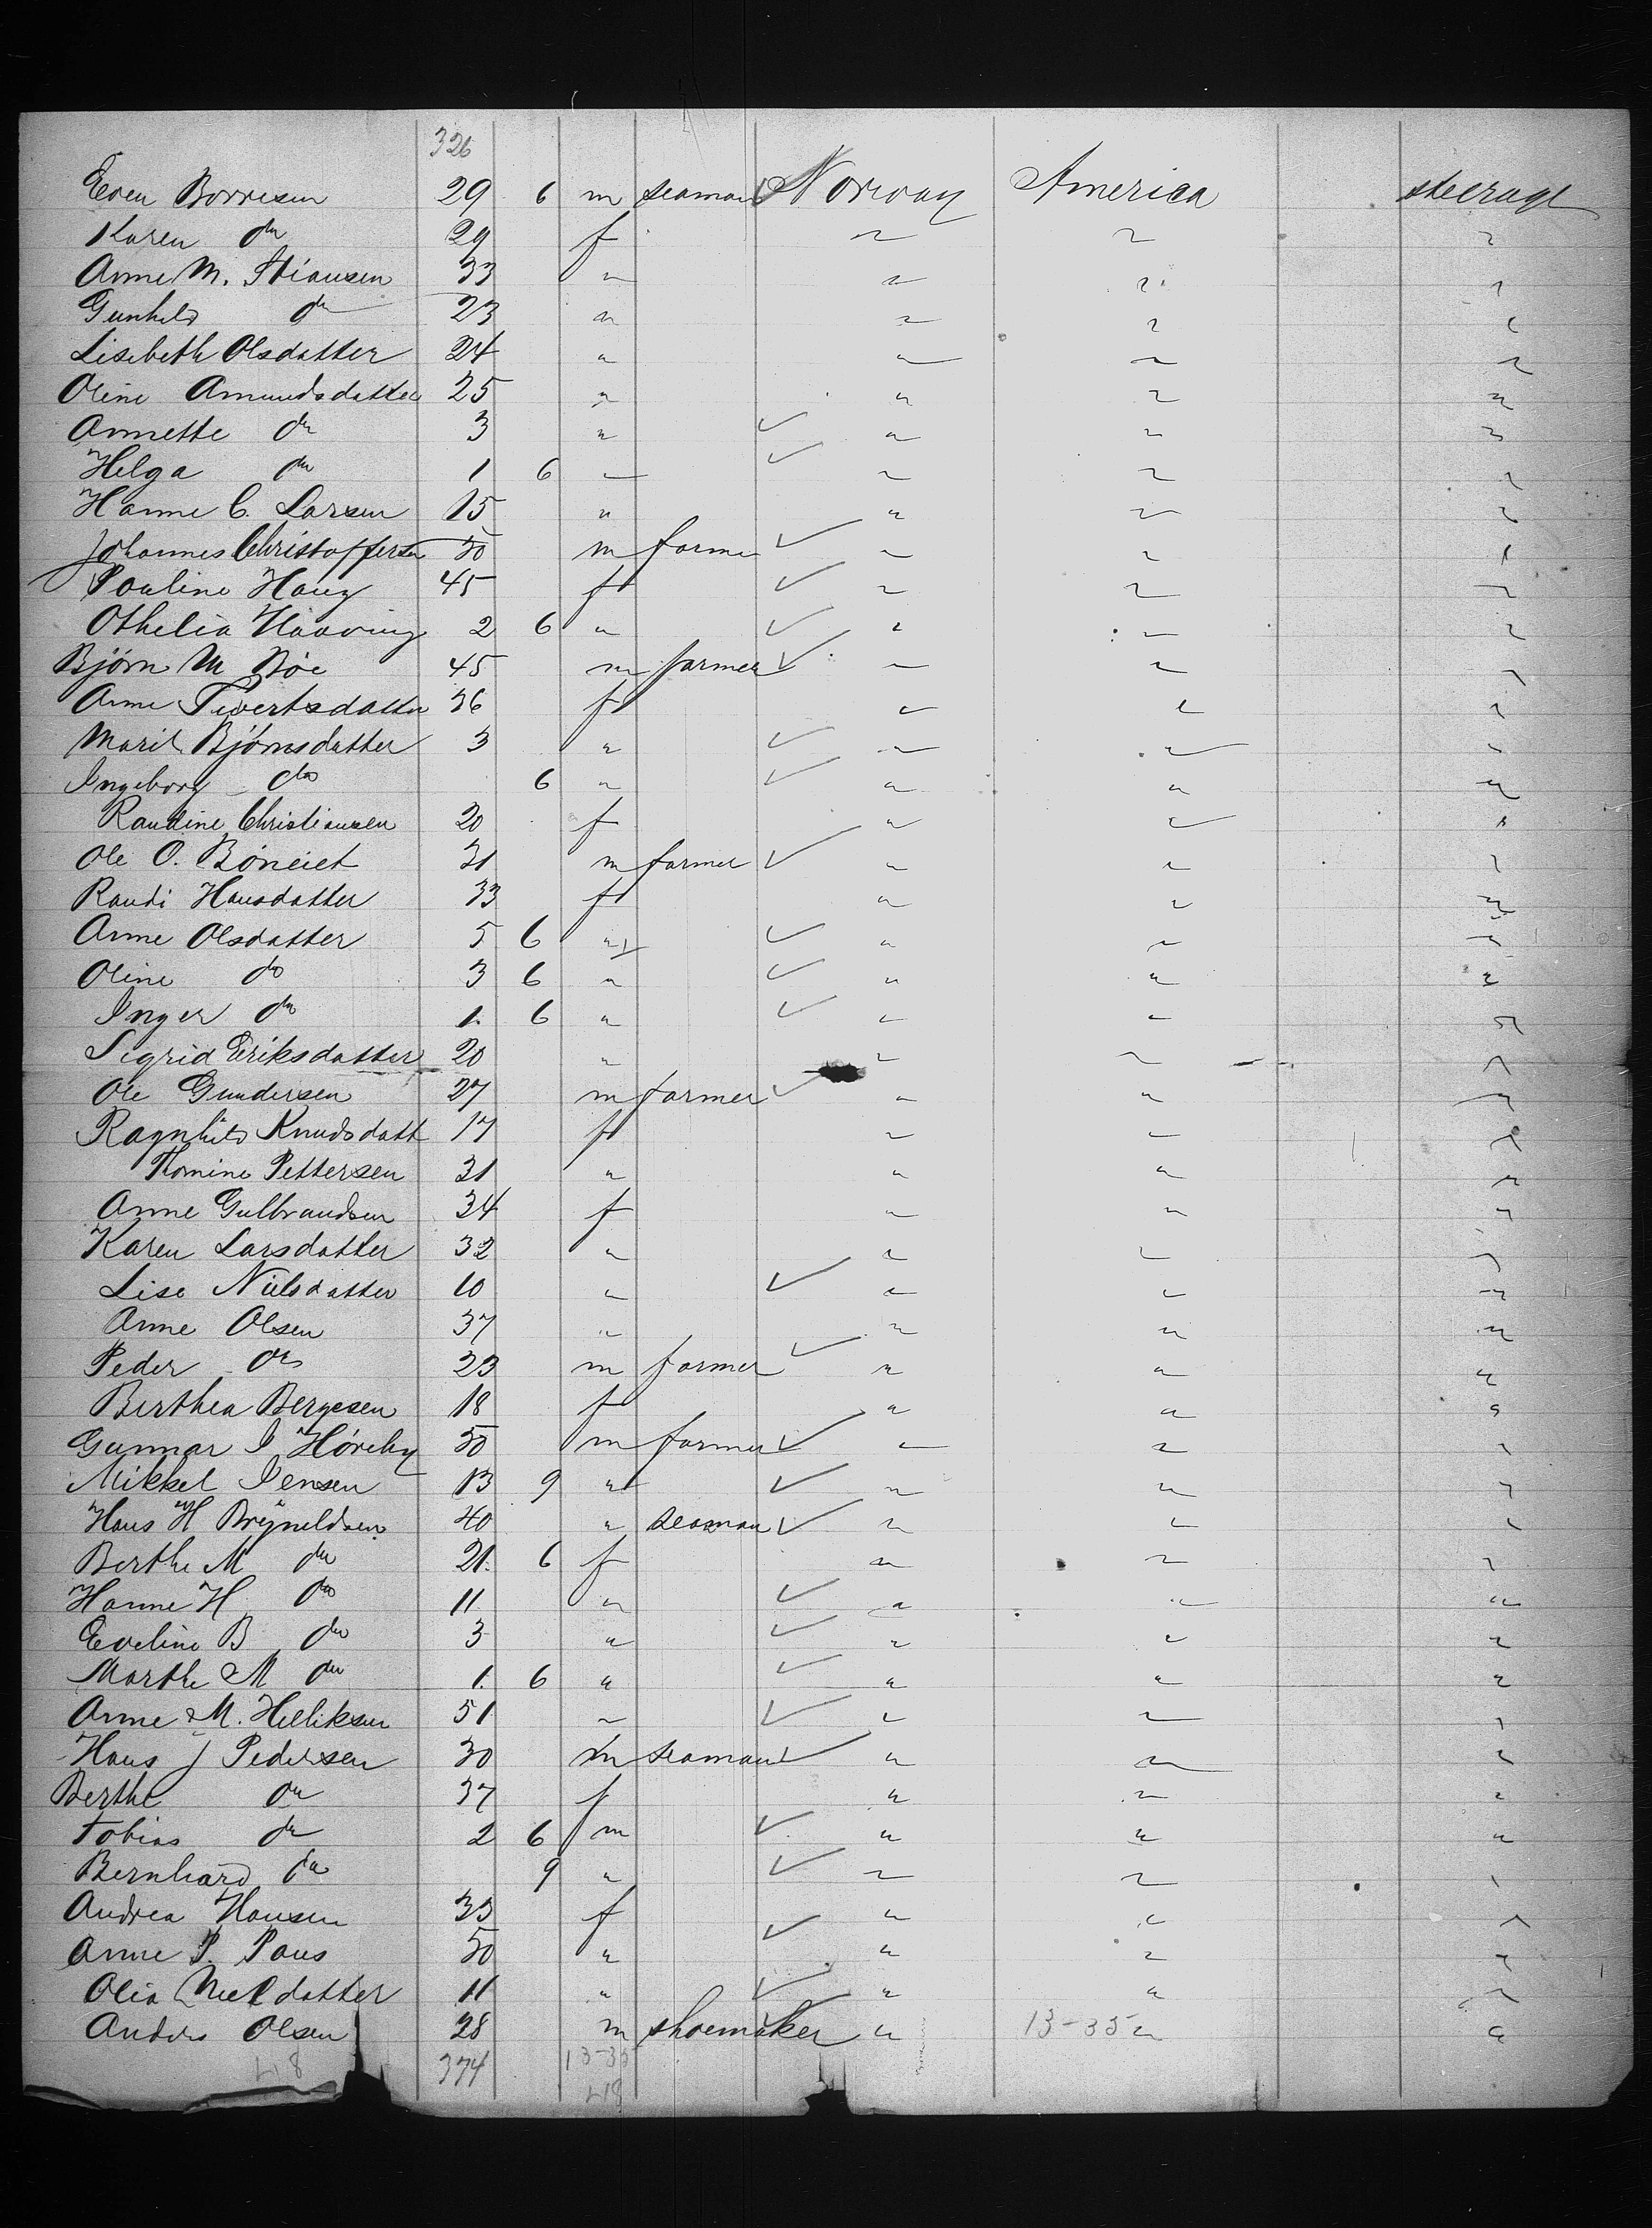 326
Even Borresen 29 6 m seaman Norway America steerage
Karen do 29 f " " "
Anne M. Stiansen 33 " " " "
Gunhild do 23 " " " "
Lisebeth Olsdatter 24 " " " "
Oline Amundsdatter 25 " " " "
Annette do 3 " ✓ " " "
Helga do 1 6 " ✓ " " "
Hanne C. Larsen 15 " " " "
Johannes Christoffersen 50 m farmer ✓ " " "
Pauline Haug 45 f ✓ " " "
Othelia 2 6 " ✓ " " "
Björn M Böe 45 m farmer ✓ " " "
Anne Sivertsdatter 36 f " " "
Marit Björnsdatter 3 " ✓ " " "
Ingeborg do 6 " ✓ " " "
Randine Christiansen 20 f " " "
Ole O. 31 m farmer ✓ " " "
Randi Hansdatter 33 f " " "
Anne Olsdatter 5 6 " ✓ " " "
Oline do 3 6 " ✓ " " "
Inger do 1. 6 " ✓ " " "
Sigrid Eriksdatter 20 " " " "
Ole Gundersen 27 m farmer ✓ " " "
Ragnhild Knudsdatt 17 f " " "
Thomine Pettersen 31 " " " "
Anne Gulbrandsen 34 f " " "
Karen Larsdatter 32 " " " "
Lise Nielsdatter 10 " ✓ " " "
Anne Olsen 37 " " " "
Peder do 23 m farmer ✓ " " "
Berthea Bergesen 18 f " " "
Gunnar I 50 m farmer ✓ " " "
Mikkel Jensen 13 9 " ✓ " " "
Hans H Bryneldsen 40 " seaman ✓ " " "
Berthe M do 21. 6 f " " "
Hanne H do 11 " ✓ " " "
Eveline B do 3 " ✓ " " "
Marthe M do 1. 6 " ✓ " " "
Anne M. Helliksen 51 " ✓ " " "
Hans J Pedersen 30 m seaman ✓ " " "
Berthe do 37 f " " "
Tobias do 2 6 m ✓ " " "
Bernhard do 9 " ✓ " " "
Andrea Hansen 33 f " " "
Anne P. Paus 50 " ✓ " " "
Olia 11 " ✓ " " "
Anders Olsen 28 m shoemaker " 13-35 " "
374 13-35